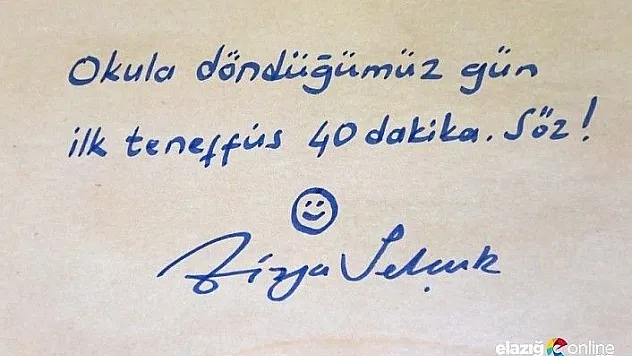 Okula döndüğümüz gün
ilk teneffüs 40 dakika. Söz!
Ziya Selçuk
elazığ online